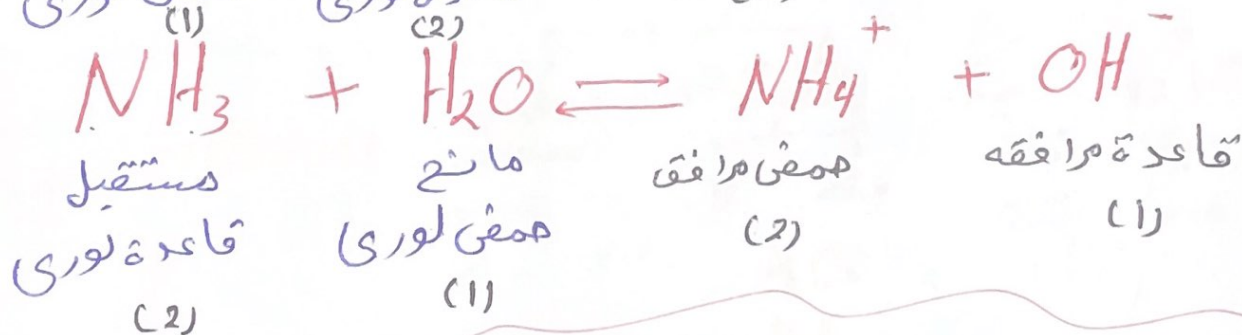 (1) (2)
NH₃ + H₂O ⇌ NH₄⁺ + OH⁻
مستقبل مانح حمض مرافق قاعدة مرافقه
قاعدة لورى حمض لورى (2) (1)
(2) (1)